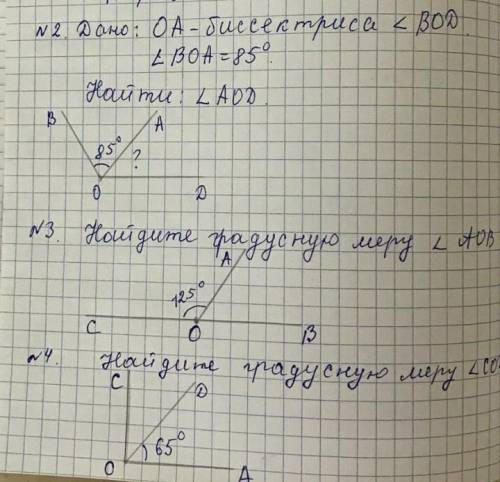 №2. Дано: OA - биссектриса ∠BOD.
∠BOA = 85°.
Найти: ∠AOD.
B
A
85°
?
O
D
№3. Найдите градусную меру ∠AOB
A
125°
C
O
B
№4. Найдите градусную меру
C
D
65°
O
A